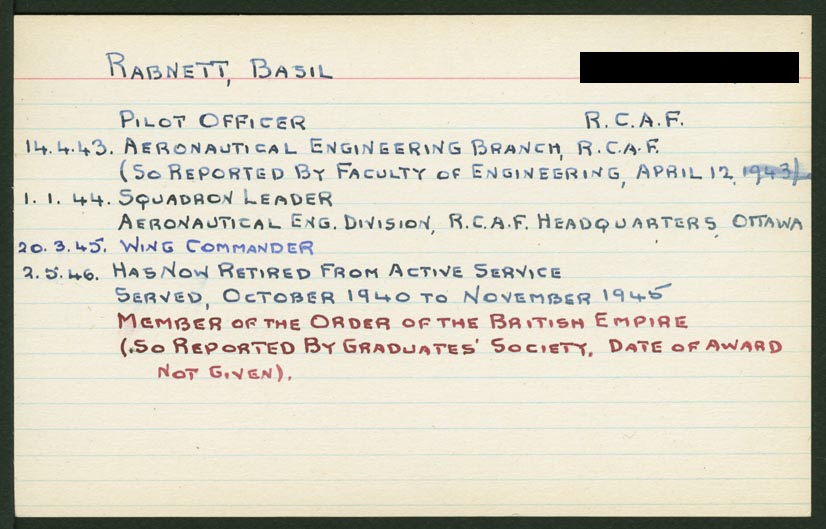 RABNETT, BASIL
PILOT OFFICER R.C.A.F.
14.4.43. AERONAUTICAL ENGINEERING BRANCH, R.C.A.F.
(SO REPORTED BY FACULTY OF ENGINEERING, APRIL 12, 1943)
1.1.44. SQUADRON LEADER
AERONAUTICAL ENG. DIVISION, R.C.A.F. HEADQUARTERS, OTTAWA
20.3.45. WING COMMANDER
2.5.46. HAS NOW RETIRED FROM ACTIVE SERVICE
SERVED, OCTOBER 1940 TO NOVEMBER 1945
MEMBER OF THE ORDER OF THE BRITISH EMPIRE
(SO REPORTED BY GRADUATES' SOCIETY. DATE OF AWARD
NOT GIVEN).